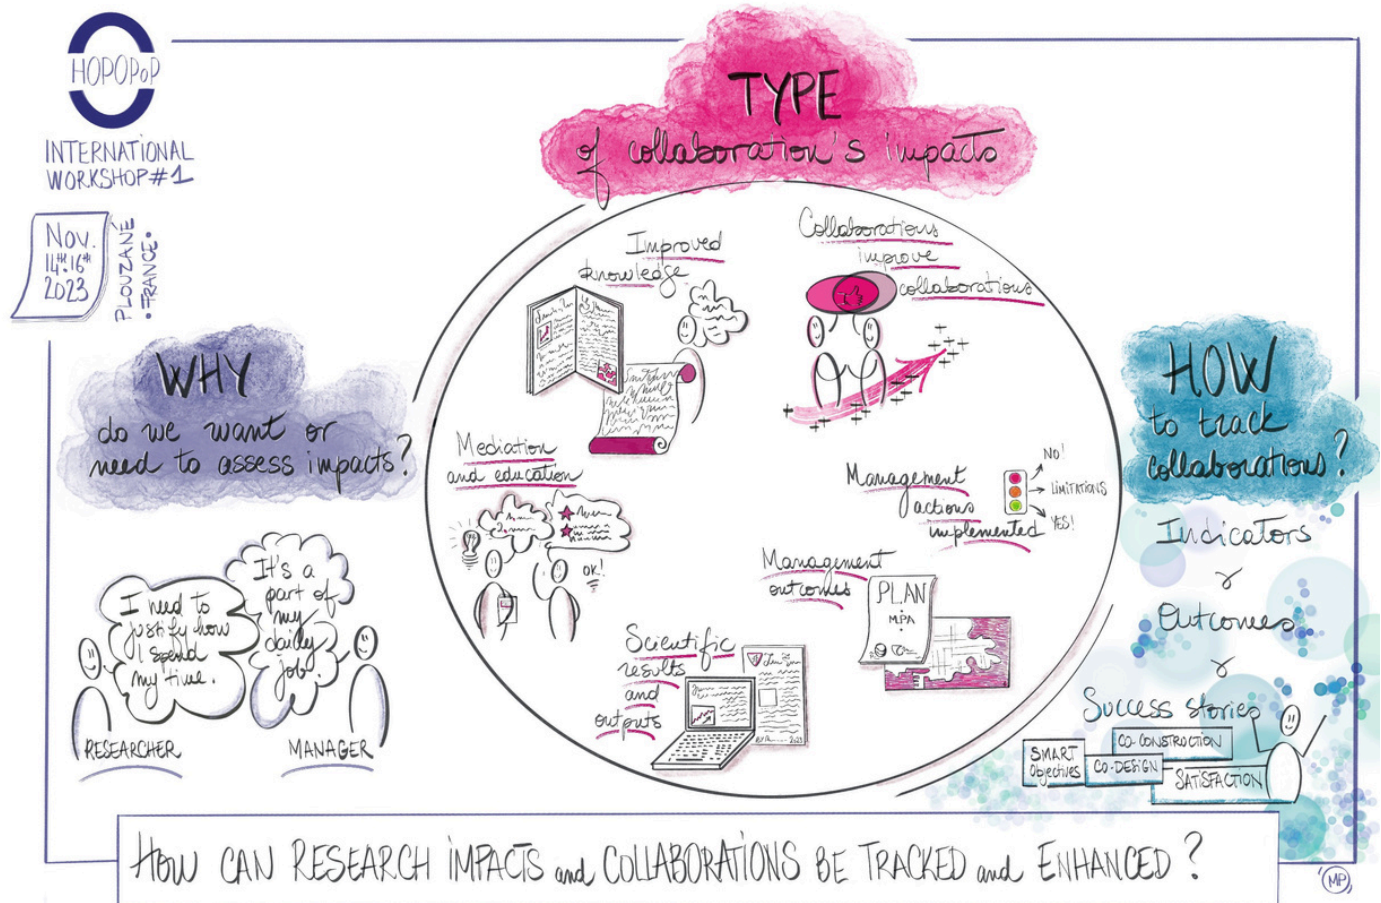 HOPOPoP
INTERNATIONAL
WORKSHOP #1
NOV.
14th.16th
2023
PLOUZANÉ
• FRANCE •
TYPE
of collaboration's impacts
WHY
do we want or
need to assess impacts?
I need to
justify how
I spend
my time.
RESEARCHER
It's a
part of
my
daily
job.
MANAGER
Improved
knowledge
Collaborations
improve
collaborations
Mediation
and education
1.
2.
OK!
Management
actions
implemented
NO!
LIMITATIONS
YES!
Management
outcomes
PLAN
MPA
Scientific
results
and
outputs
2023
HOW
to track
collaborations?
Indicators
Outcomes
Success stories
SMART
Objectives
CO-CONSTRUCTION
CO-DESIGN
SATISFACTION
HOW CAN RESEARCH IMPACTS and COLLABORATIONS BE TRACKED and ENHANCED?
MP